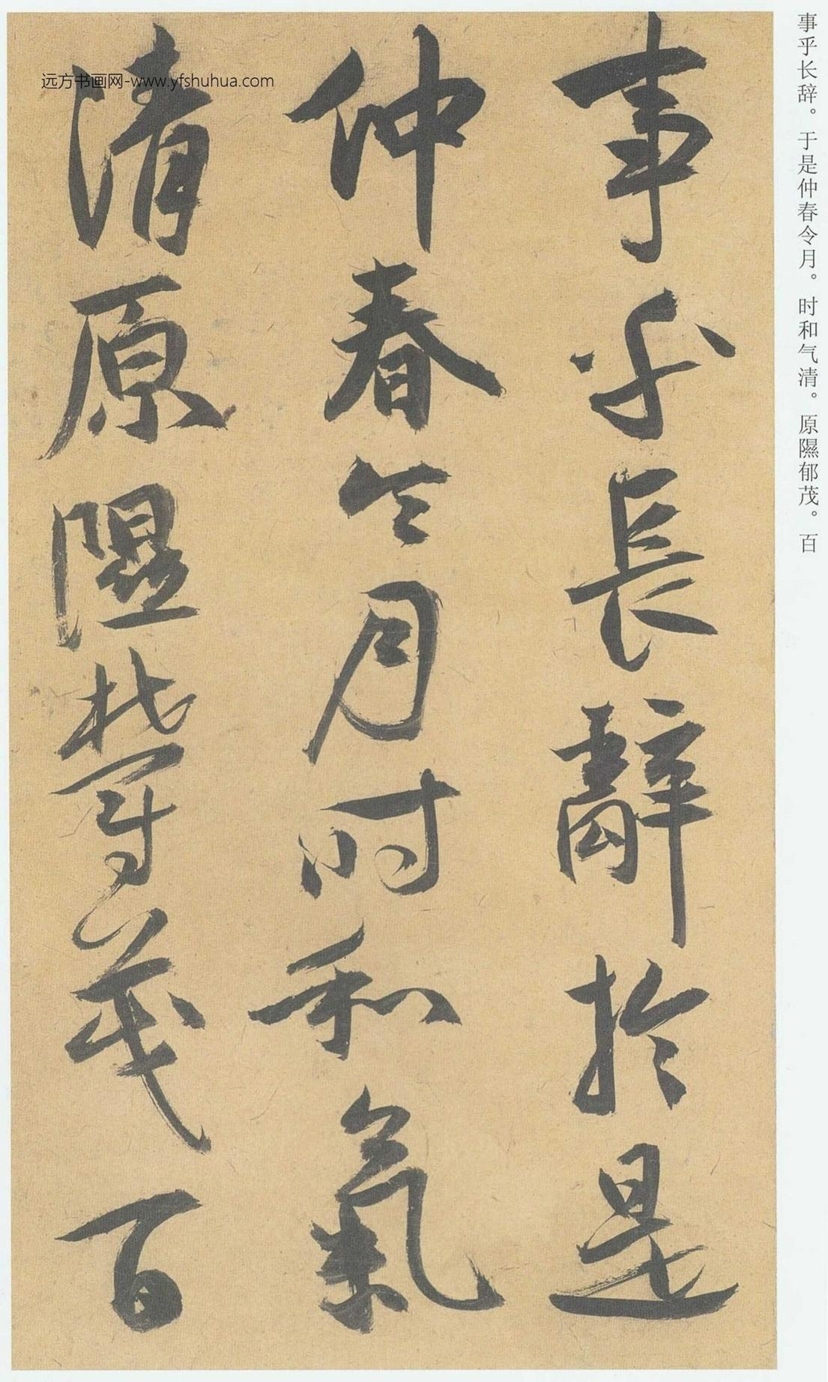 事乎長辭於是
仲春令月时和氣
清原隰鬱茂百
事乎长辞。于是仲春令月。时和气清。原隰郁茂。百
远方书画网-www.yfshuhua.com